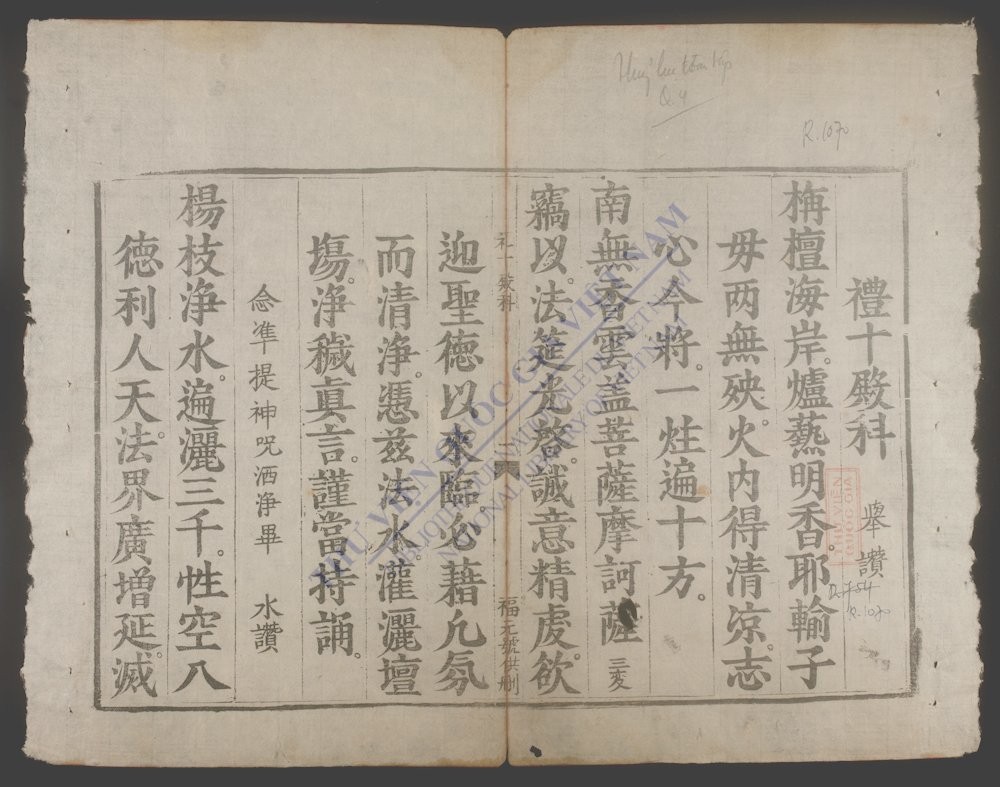 禮十殿科 舉讚
栴檀海岸。爐爇明香。耶輸子
毋两無殃。火内得清凉。志
心今將。一炷遍十方。
南無香雲盖菩薩摩訶薩 三変
竊以。法筵光啓。誠意精虔。欲
礼十殿科 二 福元號供刪
迎聖徳以來臨。必藉凢氛
而清浄。憑兹法水。灌灑壇
塲。浄穢真言。謹當持誦。
念凖提神咒洒浄畢 水讚
楊枝浄水。遍灑三千。性空八
徳利人天。法界廣增延。滅
R.1070
R.1070
THƯ VIỆN QUỐC GIA VIỆT NAM
BIBLIOTHEQUE NATIONALE DU VIETNAM
NATIONAL LIBRARY OF VIETNAM
THƯ VIỆN
QUỐC GIA